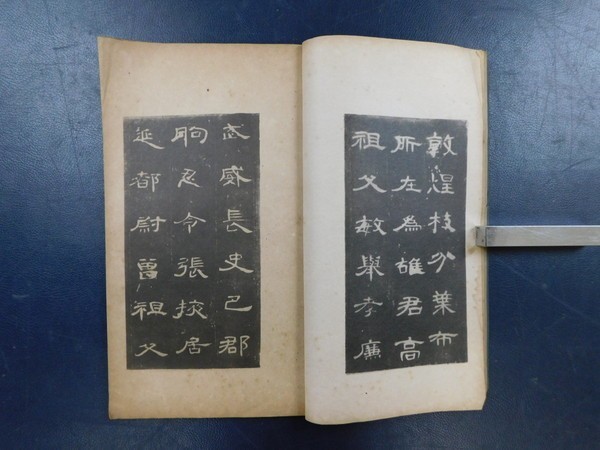 敦煌枝分葉布
所在為雄君高
祖父敏舉孝廉
武威長史巴郡
朐忍令張掖居
延都尉曾祖父